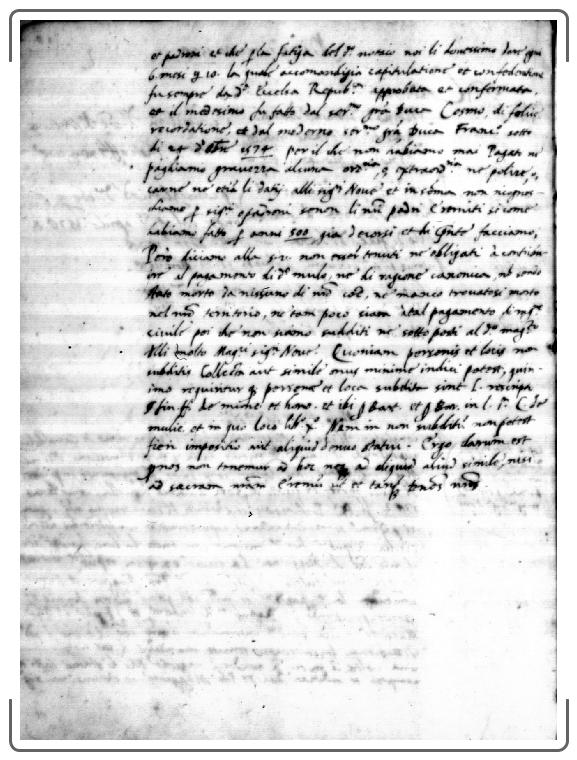 et padroni et che p la fatiga del d.º notaco noi li dovessimo dare
6. mesi la quale accomandigia capitulatione et confederatione
fu sempre da d.ª Eccelsa Repub.ca approbata et confermata,
et il medesimo fu fatto dal ser.mo già Duca Cosmo, di felice
recordatione, et dal moderno ser.mo grã Duca Franc.º sotto
di 24 d'8bre 1574 per il che non habbiamo mai Pagati ne
paghiamo gravezza alcuna ord.ria o extraord.ria ne polize,
carne ne etiã li datij alli sig.ri Nove et in sõma non ricognos-
chiamo p sig.ri o padroni se non li nr̃i padri Eremiti si come
habbiamo fatto p anni 500 già decorsi et di cõnte facciamo;
Però diciamo alla s.v. non esser tenuti ne obligati à contribu-
ire al pagamento di d.º mulo, ne di ragione canonica, nõ sendo
stato morto da nissuno di nr̃i ne manco trovatosi morto
nel nr̃o territorio, ne tam poco siam à tal pagamento di rag.e
civile poi che non siamo subditi ne sotto posti al d.º mag.to
delli molto Mag.ci sig.ri Nove. Quoniam personis et locis non
subditis Collecta aut simile onus minime indici potest, quin-
imo requiritur q. persone et loca subdita sint l. rescripta
ff. de mune. et hono. et ibi p Bart. et p Bar. in l. j.ª C. de
mulie. et in quo loco lib.º xº Nam in non subditis non potest
fieri impositio aut aliquid denuo statui. Ergo datum est
quos non tenemur ad hoc neq. ad aliquid aliud simile, nisi
ad sacram nr̃am Eremũ ut et tanq. nr̃os